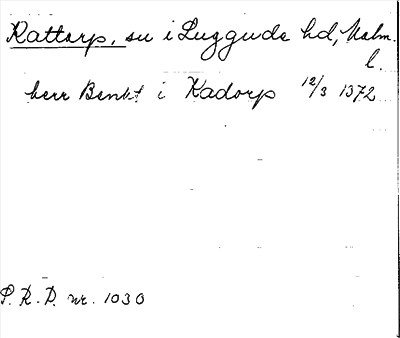 Kattarp, su i Luggude hd, Malm.
l.
herr Benkt i Kadorp 12/3 1372
P. R. P. nr. 1030